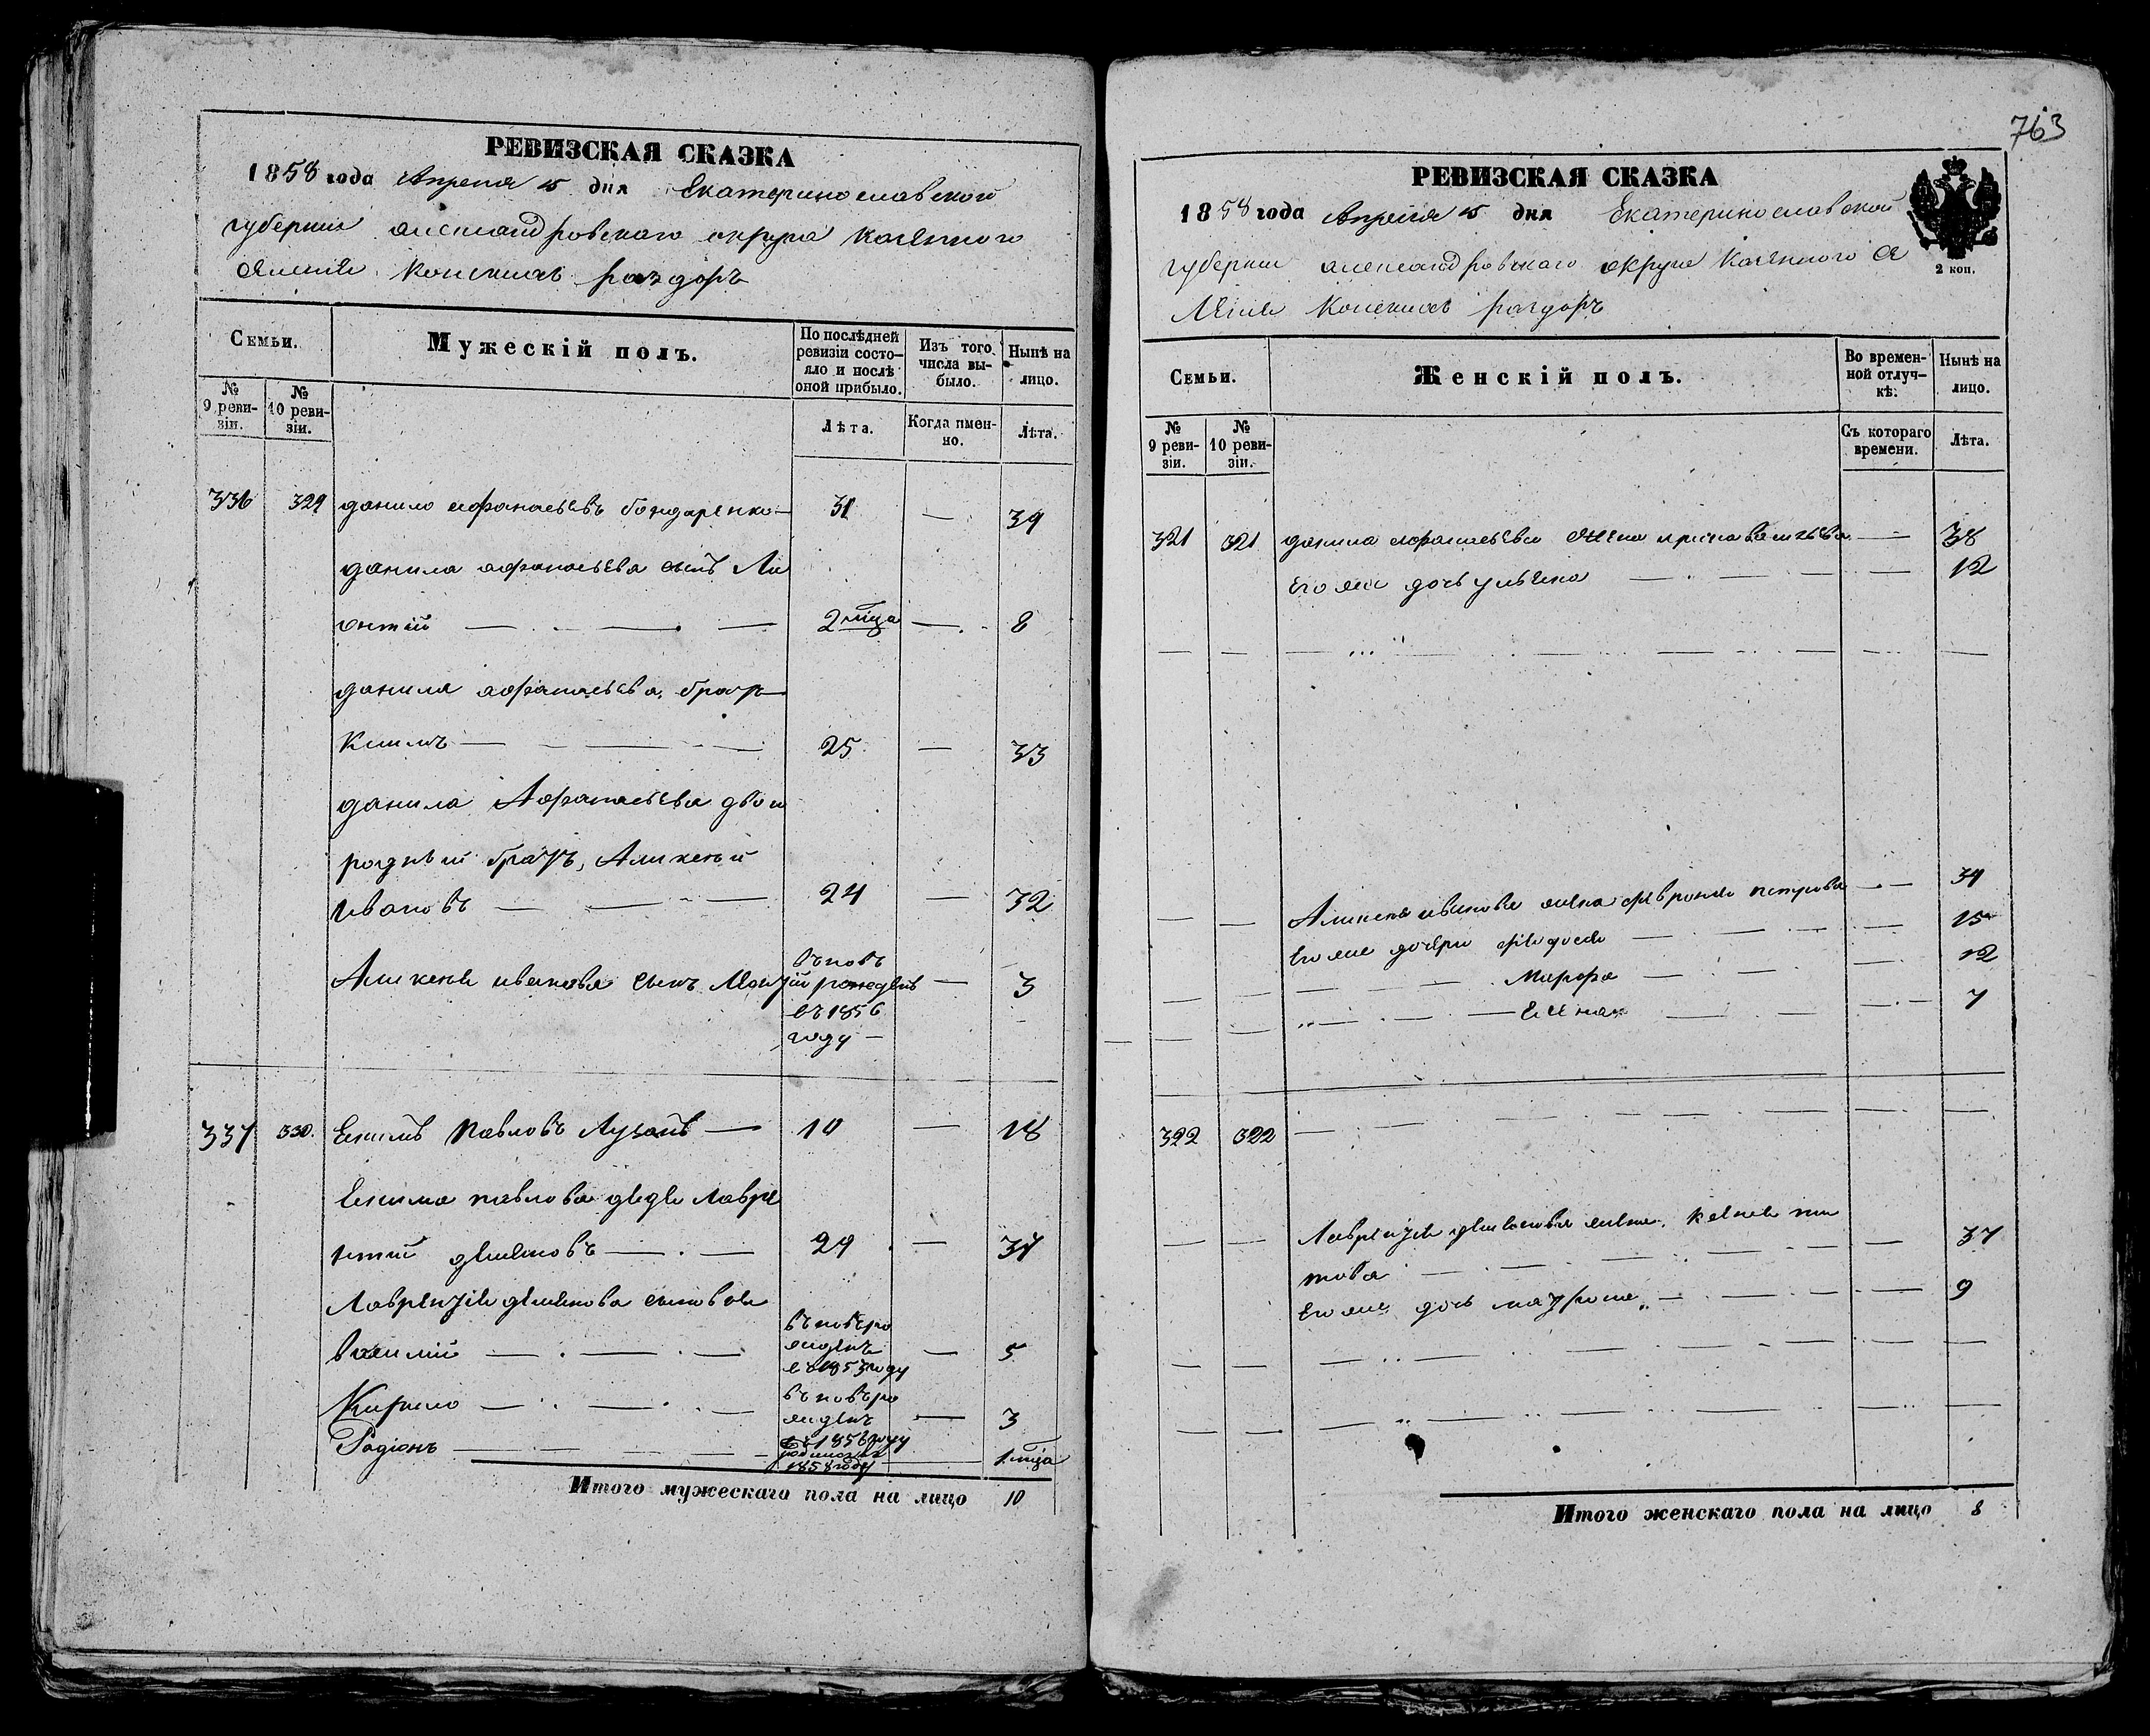 РЕВИЗСКАЯ СКАЗКА
1858 года Апреля 15 дня Екатеринославской
губернии александровскаго округа казенного
селенія Конскихъ раздоръ
Семьи.
Мужескій полъ.
По послѣдней ревизіи состояло и послѣ оной прибыло.
Изъ того числа выбыло.
Нынѣ на лицо.
№ 9 ревизіи.
№ 10 ревизіи.
Лѣта.
Когда именно.
Лѣта.
336 329 данило афанасьевъ бондаренко — 31 — 39
данила афанасьева сынъ Ли
онтій — 2 мца — 8
данила афанасьева братъ
Климъ — 25 — 33
данила Афанасьева двою
родный братъ, Аликсый
ивановъ — 24 — 32
Аликсыя иванова сынъ вновь рожденъ въ 1856 году — 3
337 330. Екимъ Павловъ — 10 — 18
Екима павлова дядя Лавре
нтий демяновъ — 29 — 37
Лаврентія демянова сыновья
василій — въ новъ рожденъ въ 1853 году — 5
Кирило — въ новъ рожденъ въ 1856 году — 3
Радіонъ — родился въ 1858 году — 1 мца
Итого мужескаго пола на лицо 10
763
РЕВИЗСКАЯ СКАЗКА
1858 года Апреля 15 дня Екатеринославской
губернии александровскаго округа Казенного се
ленія Конскихъ раздоръ
2 коп.
Семьи.
Женскій полъ.
Во временной отлучкѣ.
Нынѣ на лицо.
№ 9 ревизіи.
№ 10 ревизіи.
Съ котораго времени.
Лѣта.
321 321 данила афанасьева жена — 38
его же дочь ульяна — 12
Аликсыя иванова жена февронья петрова — 34
его же дочери федосья — 15
Марфа — 12
Елена — 7
322 322 —
Лаврентія демьянова жена ксенія ти
това — 37
его же дочь матрона — 9
Итого женскаго пола на лицо 8